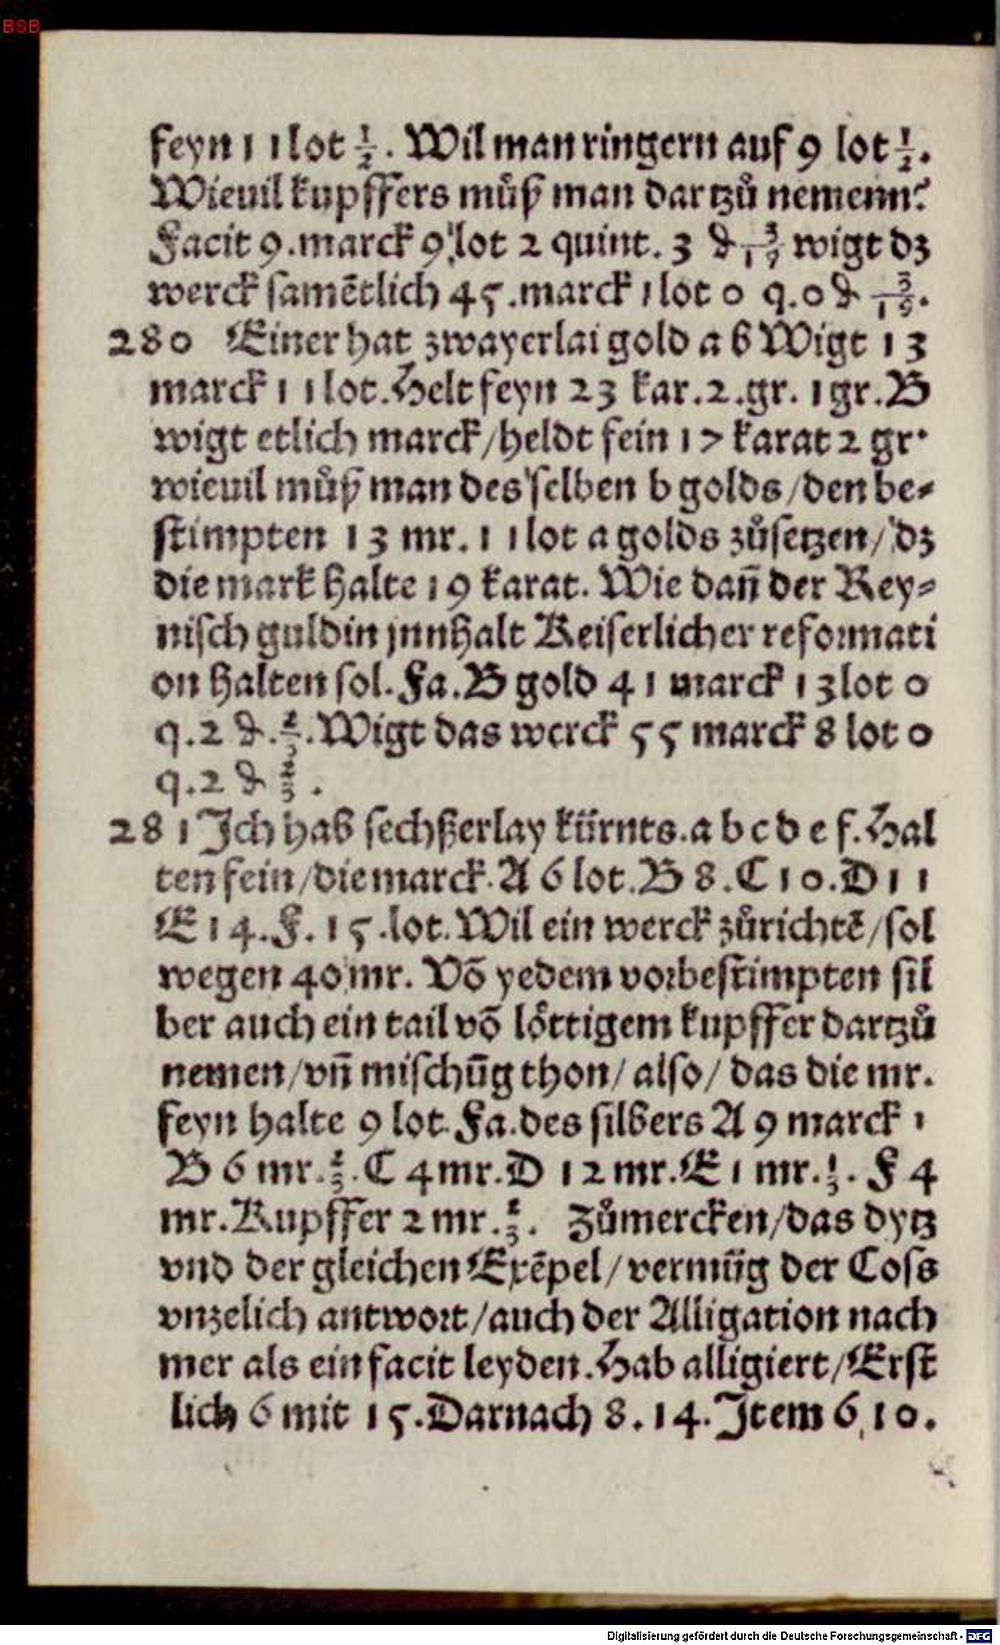 BSB
feyn 11 lot ½. Wil man ringern auf 9 lot ½.
Wieuil kupffers můß man dartzů nemenn?
Facit 9.marck 9 lot 2 quint. 3 ₰ 3/19 wigt dz
werck samētlich 45.marck 1 lot 0 q.0 ₰ 3/19.
280 Einer hat zwayerlai gold a b Wigt 13
marck 11 lot. Helt feyn 23 kar.2.gr. 1gr.B
wigt etlich marck/heldt fein 17 karat 2 gr.
wieuil můß man des selben b golds/den be-
stimpten 13 mr. 11 lot a golds zůsetzen/ dz
die mark halte 19 karat. Wie dañ der Rey-
nisch guldin jnnhalt Keiserlicher reformati
on halten sol. Fa. B gold 41 marck 13 lot 0
q.2 ₰.⅔. Wigt das werck 55 marck 8 lot 0
q.2 ₰ ⅔.
281 Jch hab sechßerlay kürnts.a b c d e f. Hal
ten fein/die marck. A 6 lot. B 8. C 10. D 11
E 14. F. 15.lot. Wil ein werck zůrichtē/sol
wegen 40 mr. Vō yedem vorbestimpten sil
ber auch ein tail vō löttigem kupffer dartzů
nemen/vñ mischūg thon/ also/ das die mr.
feyn halte 9 lot. Fa.des silbers A 9 marck 1
B 6 mr.⅔. C 4 mr. D 12 mr. E 1 mr.⅓. F 4
mr. Kupffer 2 mr.⅔. Zůmercken/das dytz
vnd der gleichen Exēpel/ vermüg der Coss
vnzelich antwort/auch der Alligation nach
mer als ein facit leyden. Hab alligiert/Erst
lich 6 mit 15. Darnach 8. 14. Jtem 6, 10.
Digitalisierung gefördert durch die Deutsche Forschungsgemeinschaft - DFG